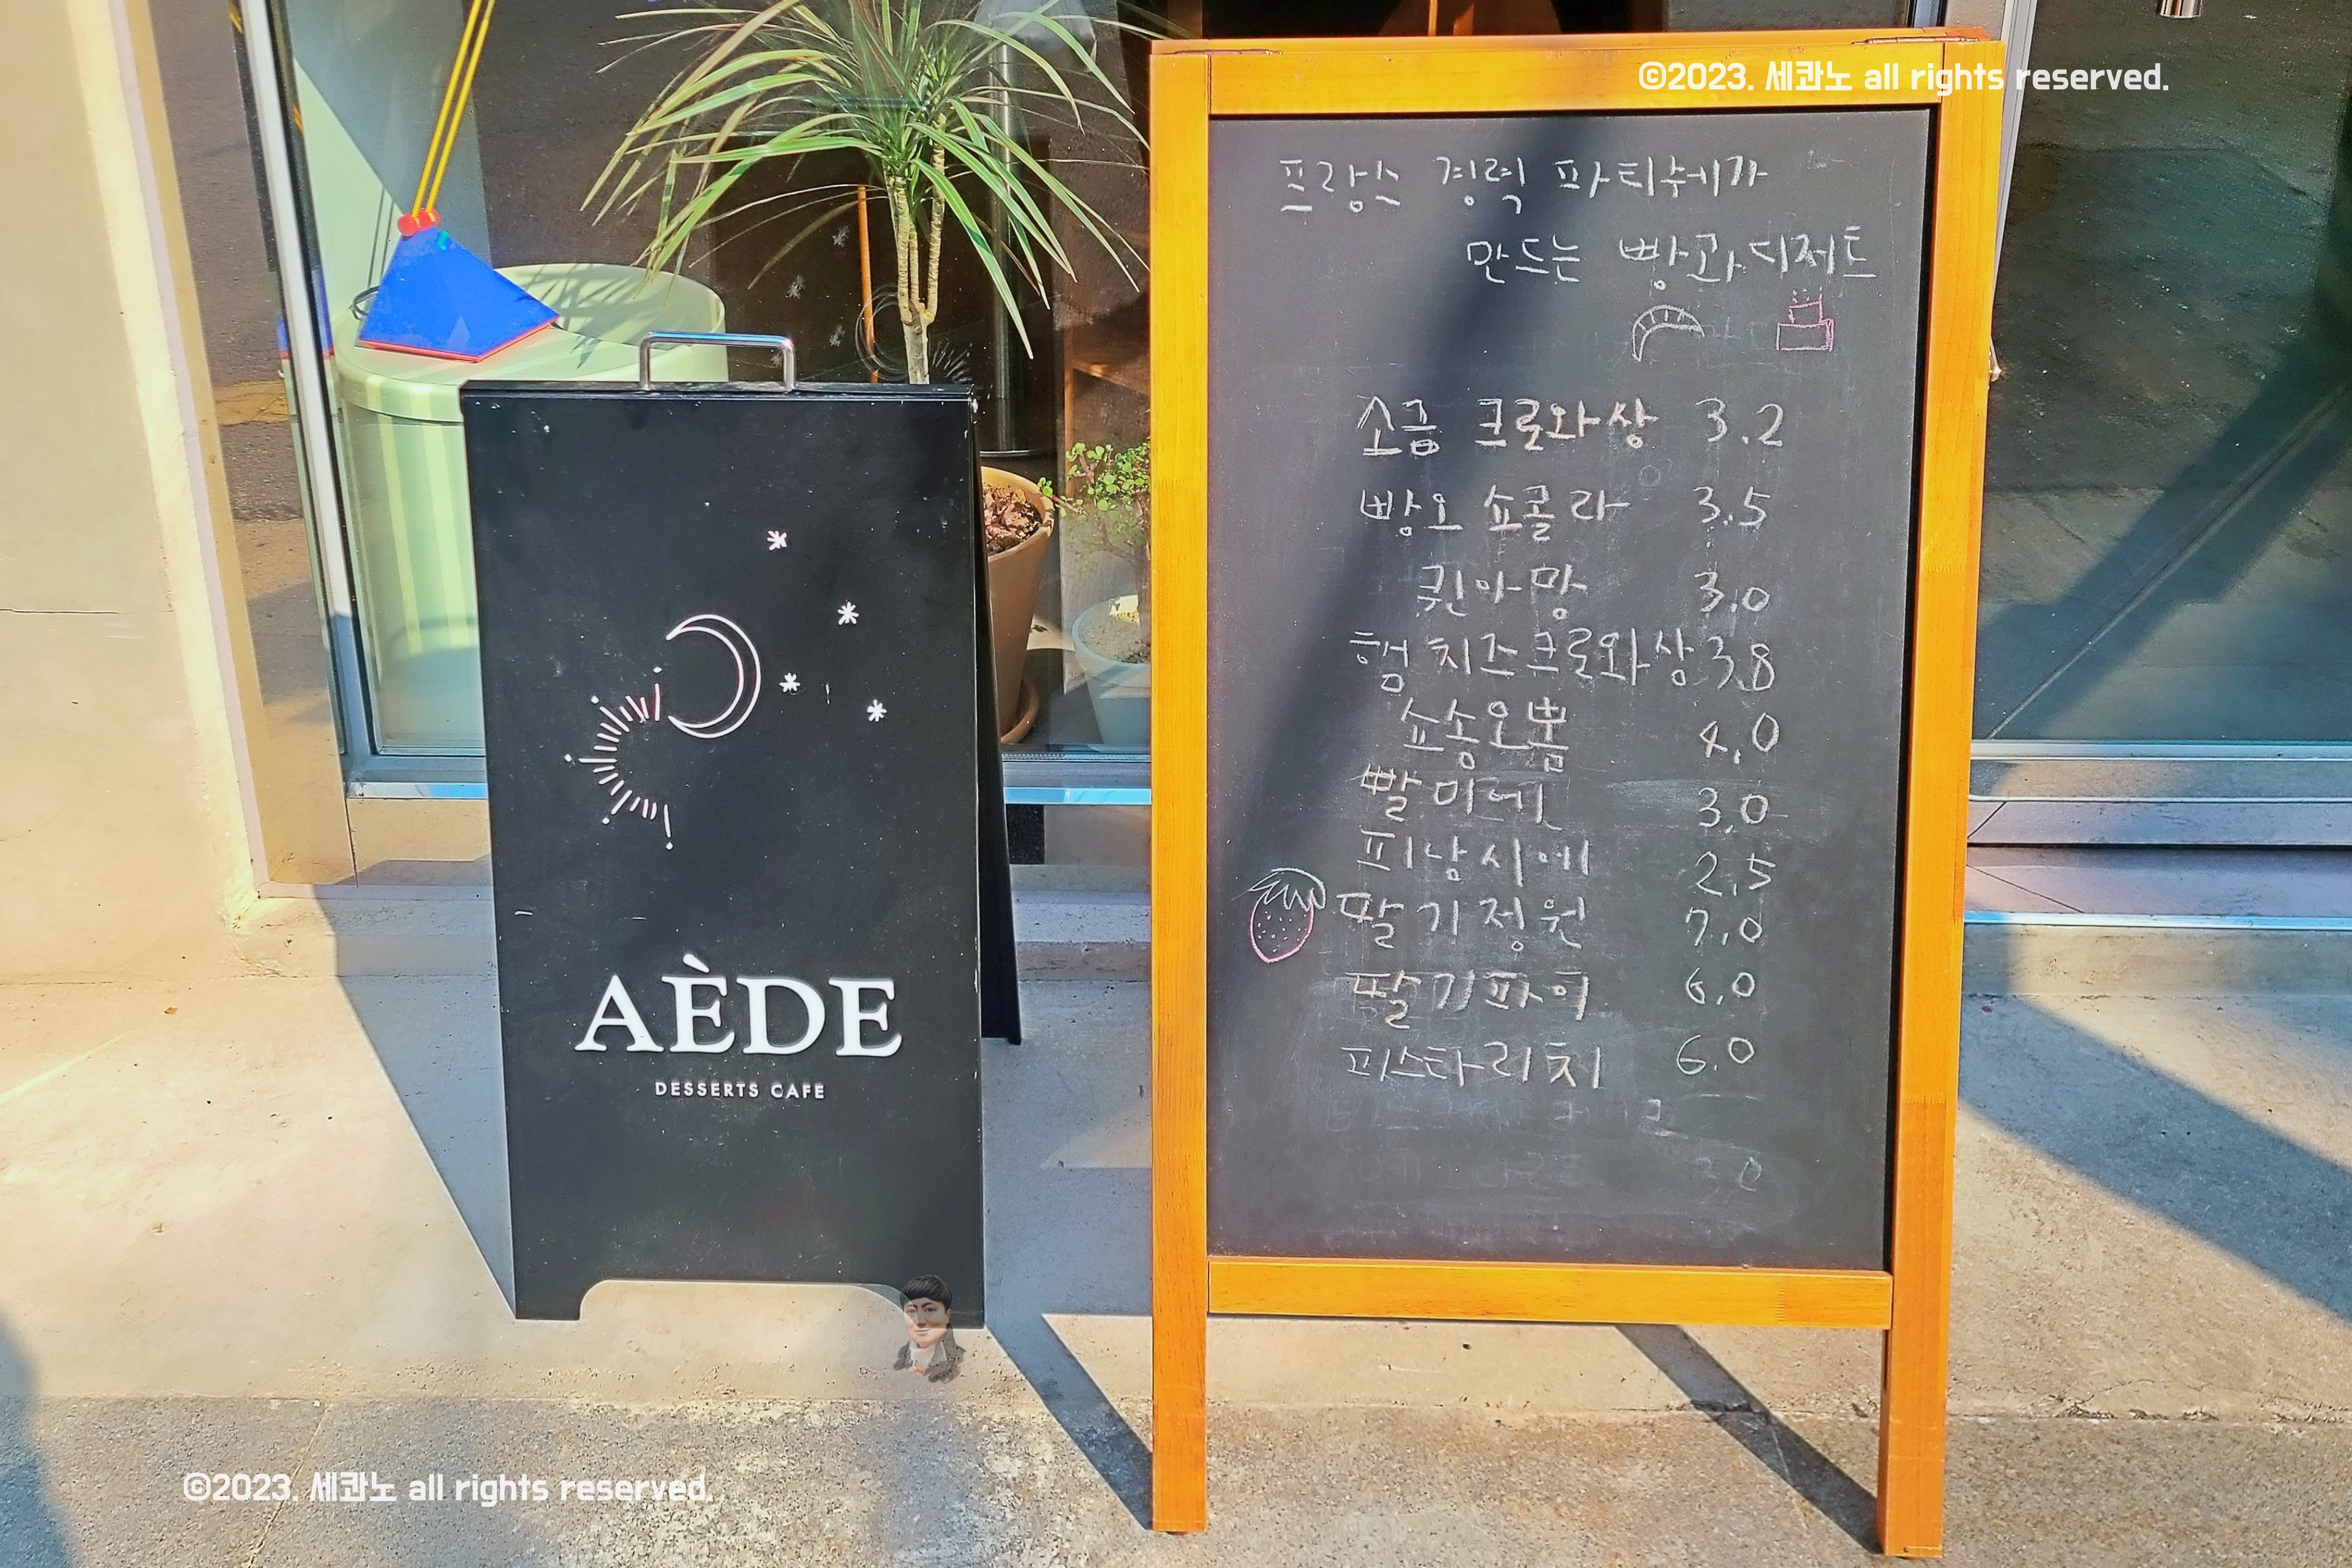 ©2023. 세콴노 all rights reserved.
프랑스 경력 파티쉐가
만드는 빵과 디저트
소금 크로와상 3.2
빵오 쇼콜라 3.5
퀸아망 3.0
햄 치즈크로와상 3.8
쇼송오뽐 4.0
빨미에 3.0
피낭시에 2.5
딸기정원 7.0
딸기파이 6.0
피스타리치 6.0
3.0
AÈDE
DESSERTS CAFE
©2023. 세콴노 all rights reserved.